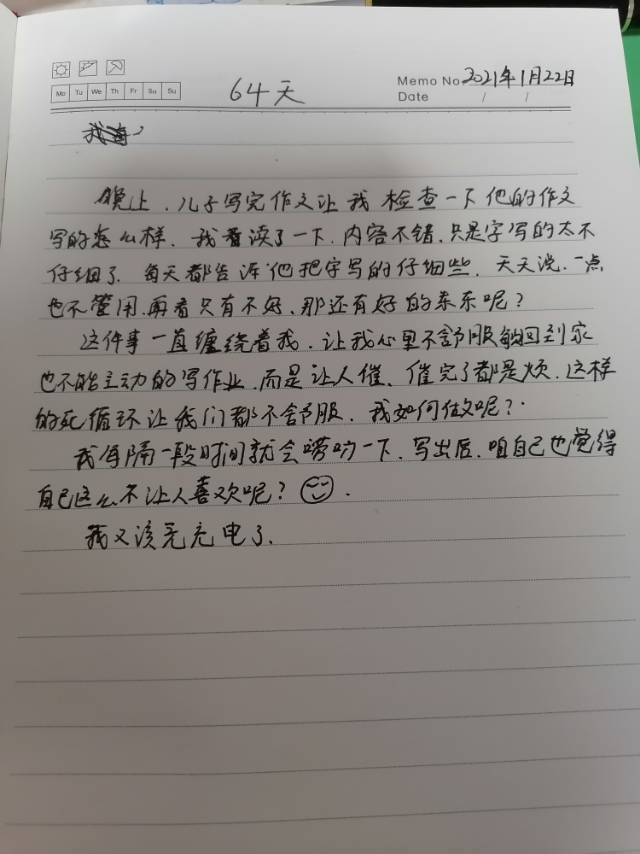 64天
Memo No 2021年1月22日
Date / /
Mo Tu We Th Fr Sa Su
晚上，儿子写完作文让我检查一下他的作文
写的怎么样，我看读了一下，内容不错，只是字写的太不
仔细了，每天都告诉他把字写的仔细些，天天说，一点
也不管用，再看只有不好，那还有好的东东呢？
这件事一直缠绕着我，让我心里不舒服，回到家
也不能主动的写作业，而是让人催，催完了都是烦，这样
的死循环让我们都不舒服，我如何做呢？
我每隔一段时间就会唠叨一下，写出后，咱自己也觉得
自己这么不让人喜欢呢？
我又该充电了.